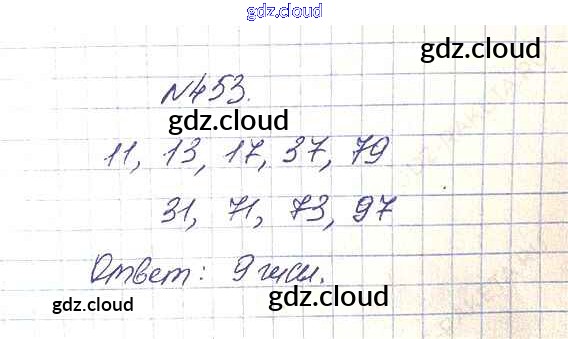 gdz.cloud
gdz.cloud
№453.
gdz.cloud
11, 13, 17, 37, 79
31, 71, 73, 97
Ответ: 9 чисел.
gdz.cloud
gdz.cloud